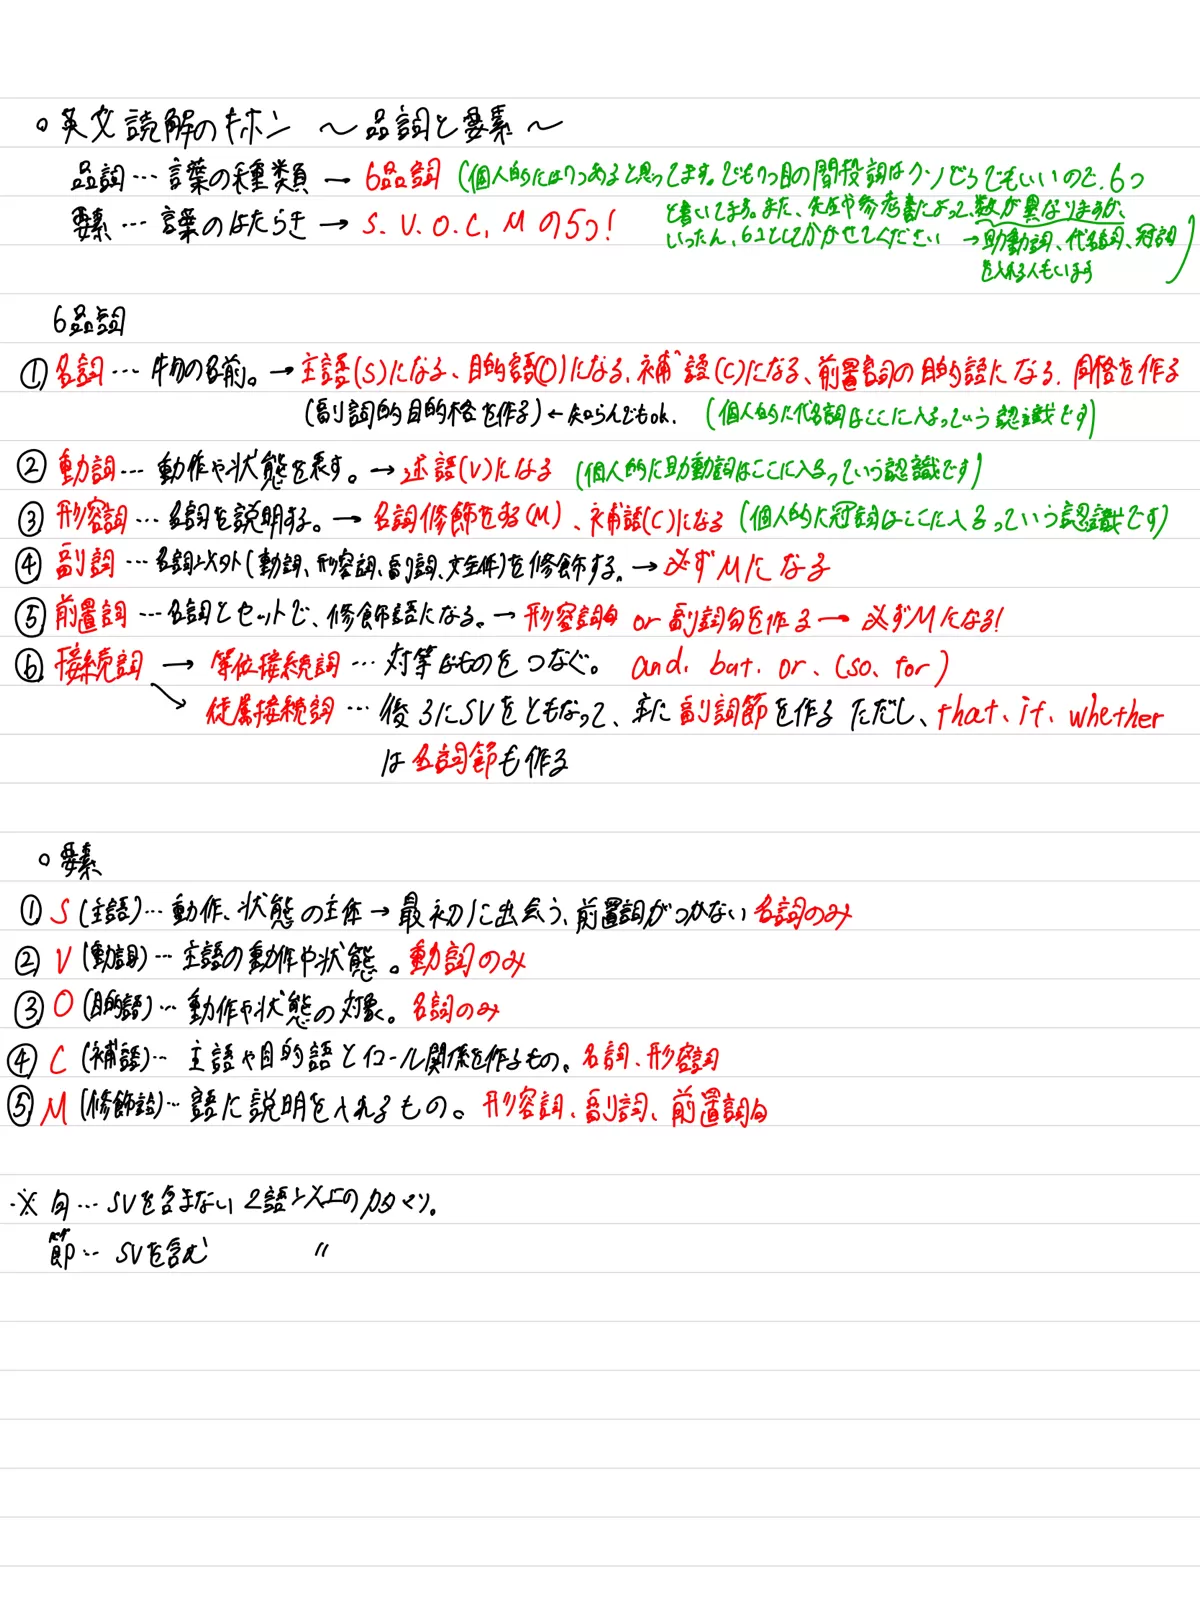 ○英文読解のキホン ～品詞と要素～
品詞…言葉の種類→6品詞(個人的には7つあると思ってます。でも7つ目の間投詞はクソどうでもいいので、6つ
と書いてます。また、先生や参考書によって、数が異なりますが、
要素…言葉のはたらき→S、V、O、C、Mの5つ!
いったん、6つとしてかかせてください →助動詞、代名詞、冠詞
を入れる人もいます)
6品詞
①名詞…物の名前。→主語(S)になる、目的語(O)になる、補語(C)になる、前置詞の目的語になる、同格を作る
(副詞的目的格を作る)←知らんでもok. (個人的に代名詞はここに入るっていう認識です)
②動詞…動作や状態を表す。→述語(V)になる (個人的に助動詞はここに入るっていう認識です)
③形容詞…名詞を説明する。→名詞修飾をする(M)、補語(C)になる(個人的に冠詞はここに入るっていう認識です)
④副詞…名詞以外(動詞、形容詞、副詞、文全体)を修飾する。→必ずMになる
⑤前置詞…名詞とセットで、修飾語になる。→形容詞句 or 副詞句を作る→必ずMになる!
⑥接続詞→等位接続詞…対等なものをつなぐ。 and. but. or、(so、for)
従属接続詞…後ろにSVをともなって、主に副詞節を作る ただし、that、if、whether
は名詞節も作る
○要素
①S(主語)…動作、状態の主体→最初に出会う、前置詞がつかない名詞のみ
②V(動詞)…主語の動作や状態。動詞のみ
③O(目的語)…動作や状態の対象。名詞のみ
④C(補語)…主語や目的語とイコール関係を作るもの。名詞、形容詞
⑤M(修飾語)…語に説明を入れるもの。形容詞、副詞、前置詞句
※句…SVを含まない2語以上のカタマリ。
節…SVを含む 〃